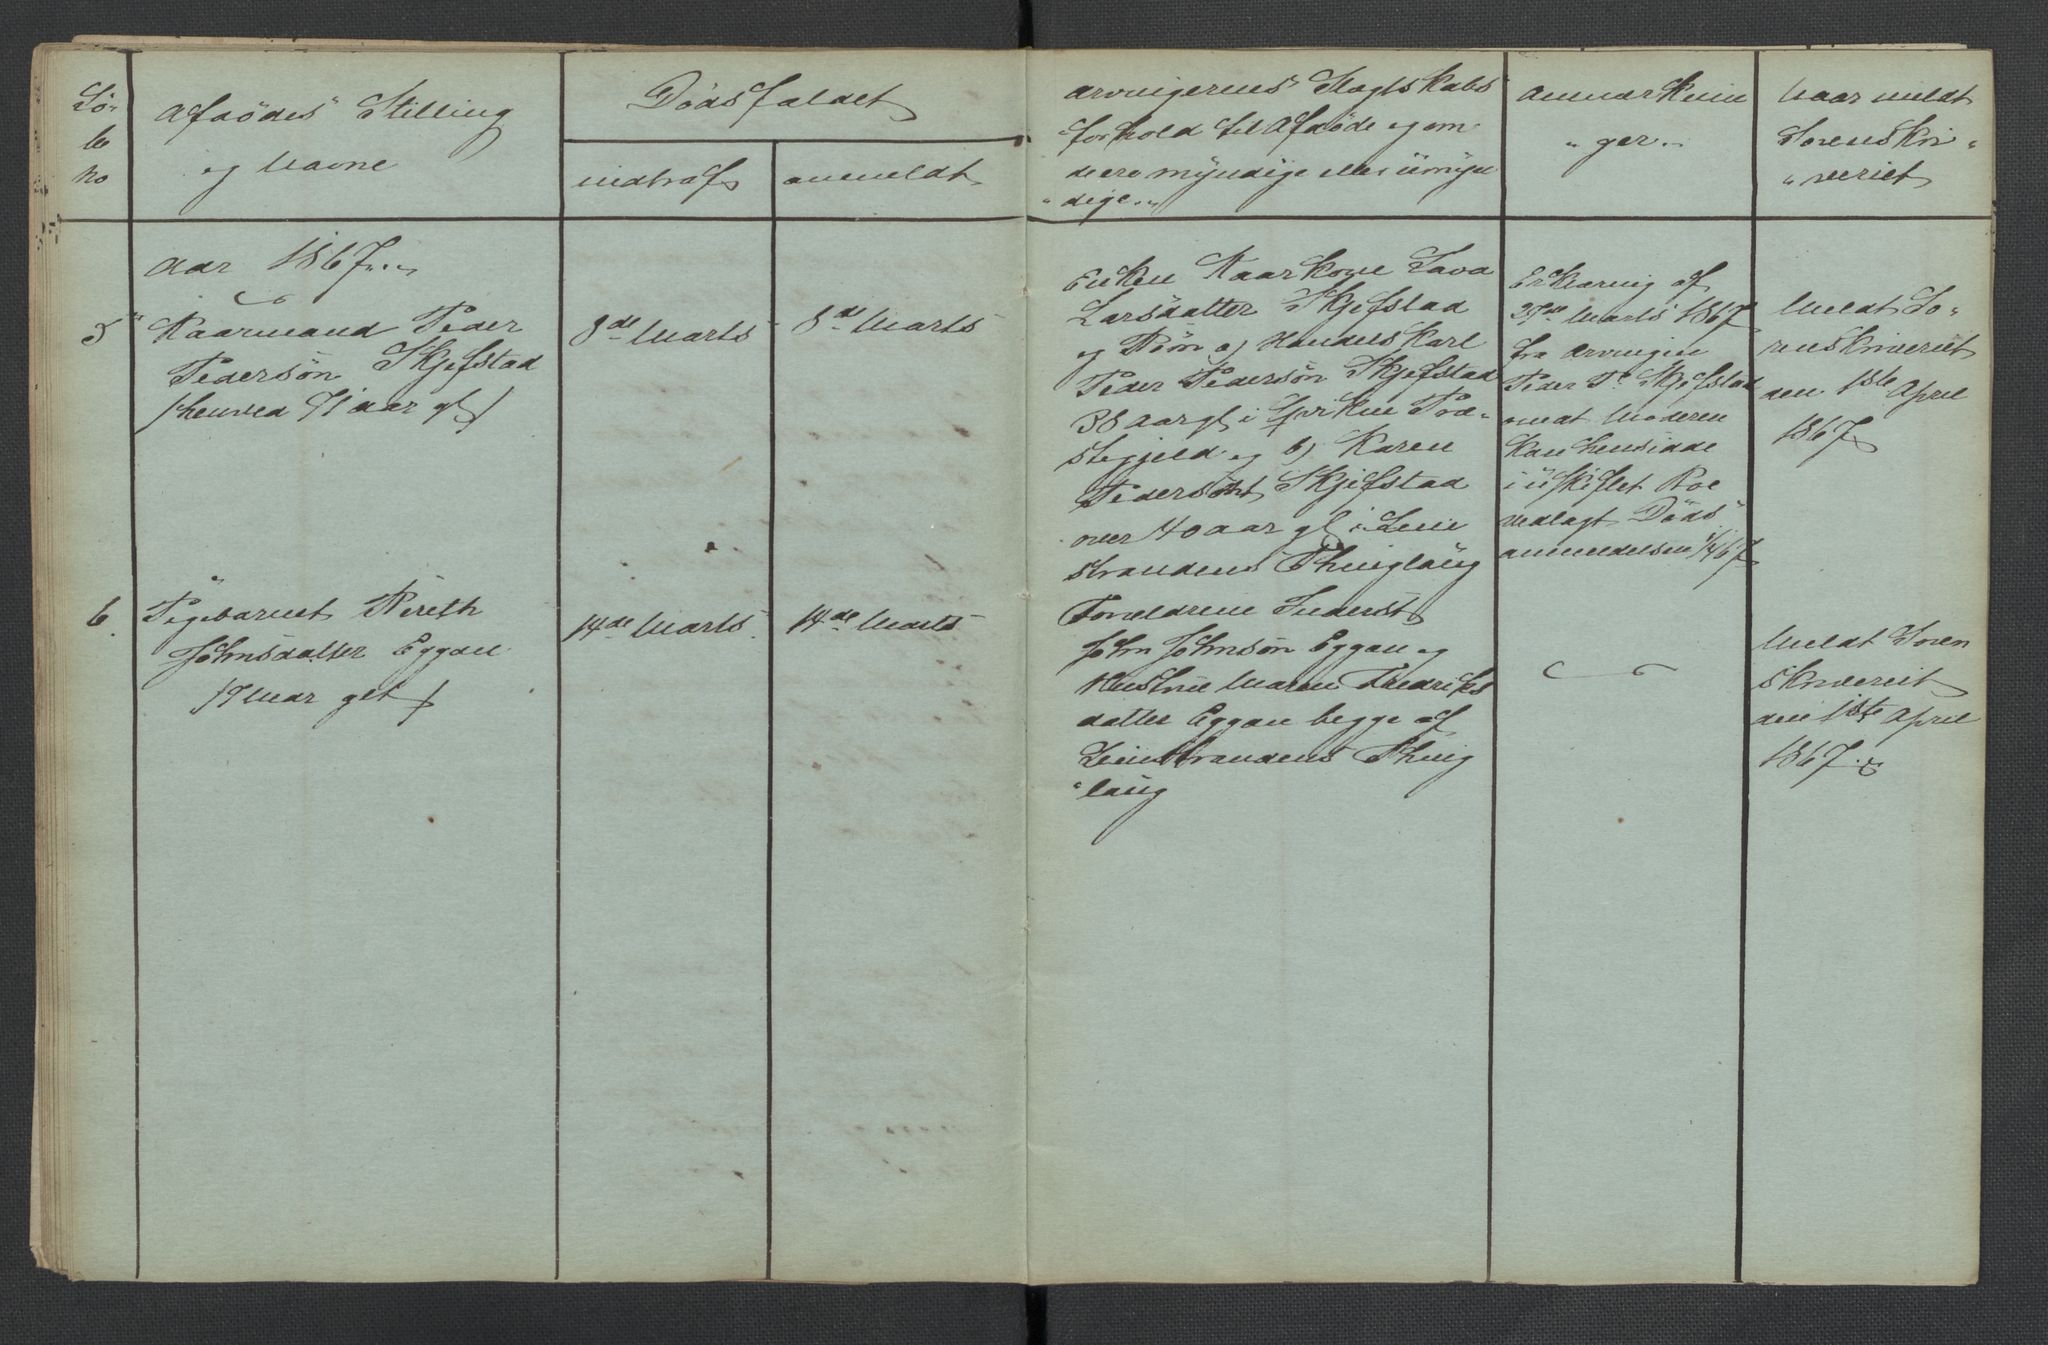 Lö-
be
no
Afdödes Stilling
og Navne
Dödsfaldet
indtraf
anmeldt
Arvingernes Slægtskabs
forhold til Afdöde og om
de ere myndige eller umyn
dige
Anmærknin
ger
Naar meldt
Sorenskri
veriet
Aar 1867
5
Kaarmand Peder
Pedersön Skjefstad
/henved 71 aar gl/
8de Marts
8de Marts
Enken Kaarkone
Larsdatter Skjefstad
og Börn a) Handelskarl
Peder Pedersön Skjefstad
38 aar gl i Præ-
stegjeld og b) Karen
Pedersdt Skjefstad
over 40 aar gl i Lein
strandens Thinglaug
Erklæring af
27de Marts 1867
fra Arvingen
Peder P. Skjefstad
om at Moderen
kan hensidde
i uskiftet Boe
vedlagt Döds
anmeldelsen 1/4 67
Meldt So-
renskriveriet
den 1ste April
1867
6.
Pigebarnet Bereth
Johnsdatter Eggan
/9 Mdr gl/
14de Marts
14de Marts
Forældrene Inderst
John Johnsön Eggan og
Hustrue Maren Fredriks
datter Eggan begge af
Leinstrandens Thing
laug
Meldt Soren
skriveriet
den 1ste April
1867